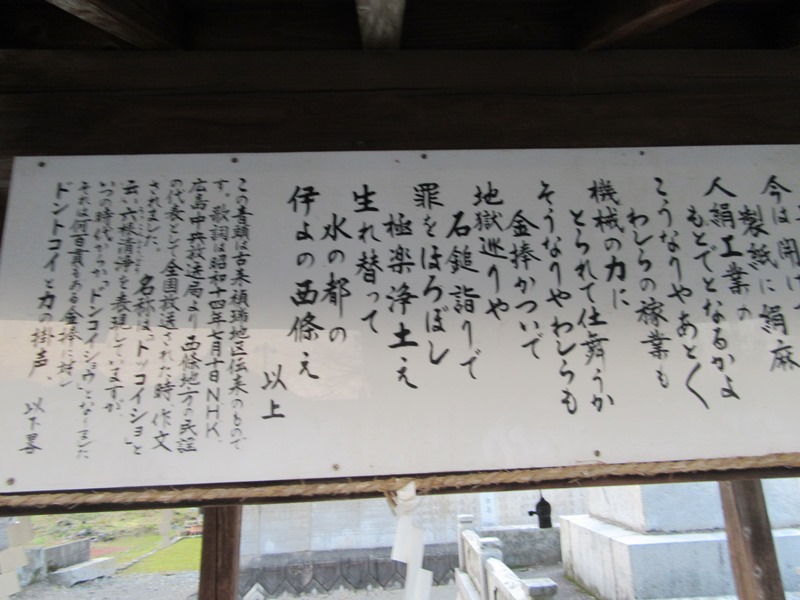 今は開けて
製紙に絹麻
人絹工業の
もとでとなるかよ
こうなりやあとく
わしらの稼業も
機械の力に
とられて仕舞うか
そうなりやわしらも
金捧かついで
地獄巡りや
石鎚詣りで
罪をほろぼし
極楽浄土え
生れ替って
水の都の
伊よの西條え
以上
この音頭は古来禎瑞地区伝来のもので
す。歌詞は昭和十四年七月十日NHK、
広島中央放送局より西條地方の民謡
の代表として全国放送された時、作文
されました。 名称は「トッコイショ」と
云い六根清浄を表現していますが
いつの時代からか「ドンコイショウ」となりました
それは何百貫もある金捧に対し
ドントコイと力の掛声、 以下畧